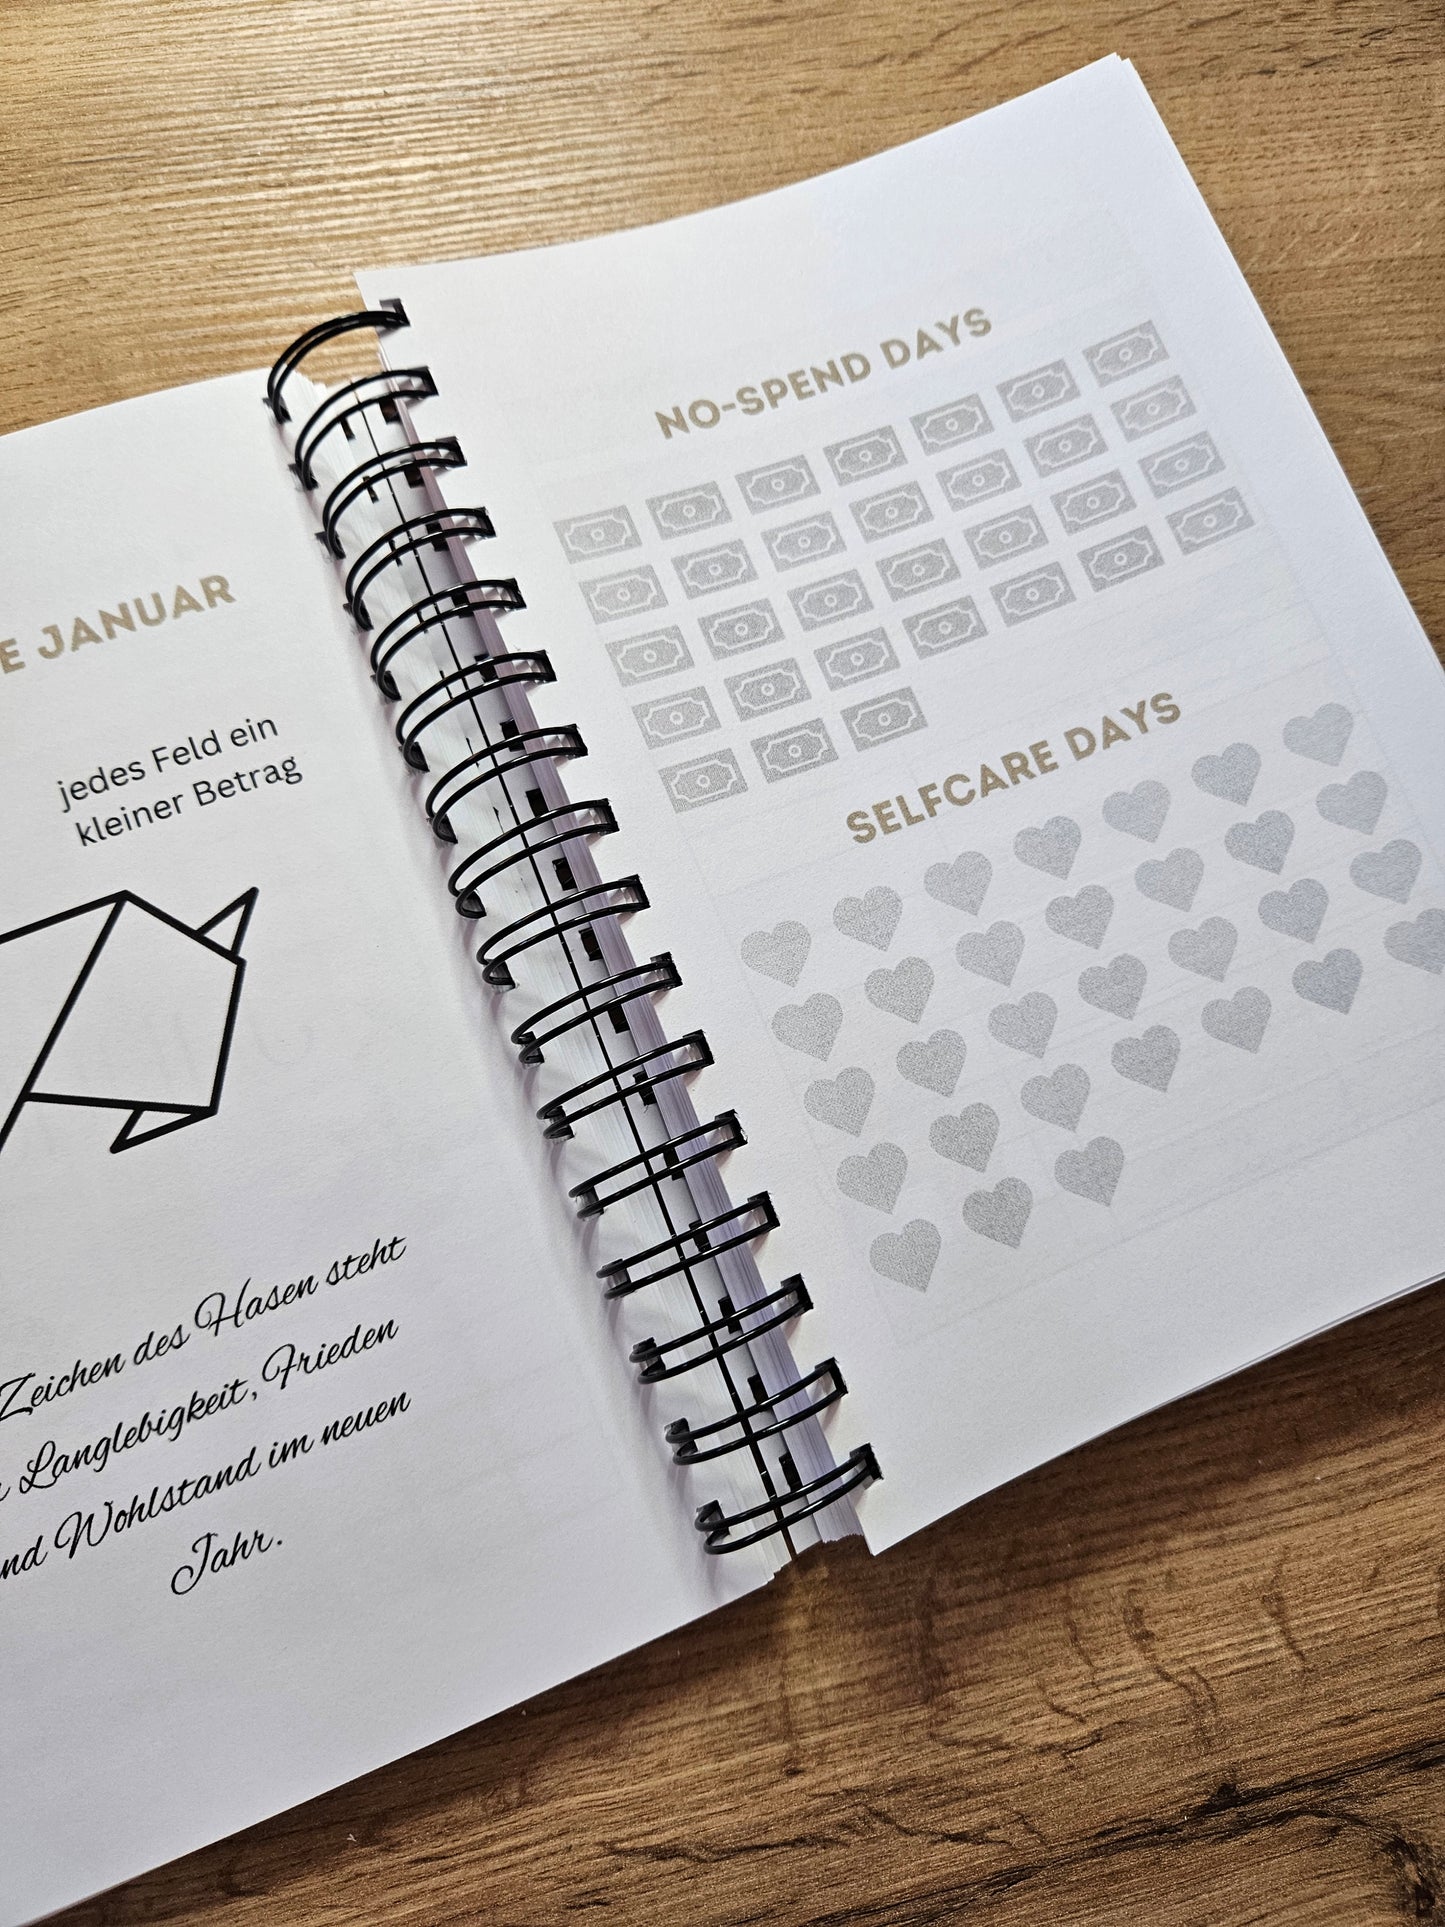 JANUAR
jedes Feld ein
kleiner Betrag
Zeichen des Hasen steht
Langlebigkeit, Frieden
Wohlstand im neuen
Jahr.
NO-SPEND DAYS
SELFCARE DAYS